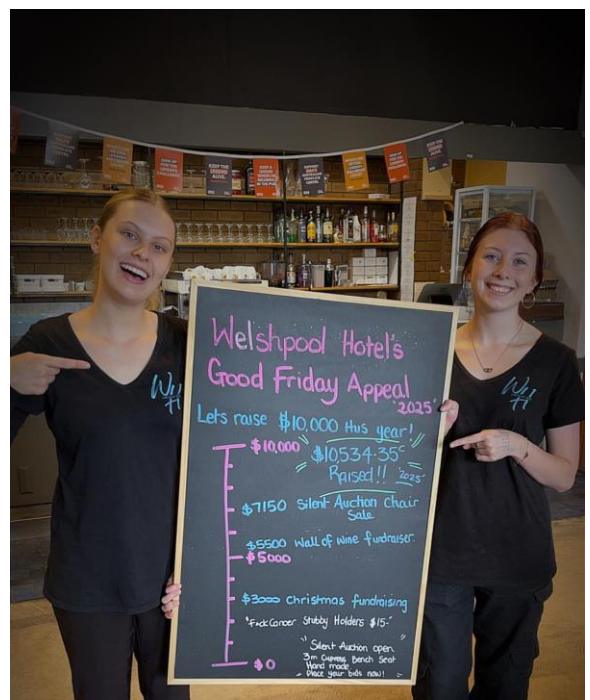 Welshpool Hotel's
Good Friday Appeal
'2025'
Lets raise $10,000 this year!
$10,000
$10534.35c
Raised!! '2025'
$7150 Silent Auction Chair
Sale
$5500 Wall of wine fundraiser.
$5000
$3000 Christmas fundraising
"F*ck Cancer Stubby Holders $15-"
"Silent Auction open"
3m Cypress Bench Seat
Hand made
- Place your bids now!
$0
WH
WH